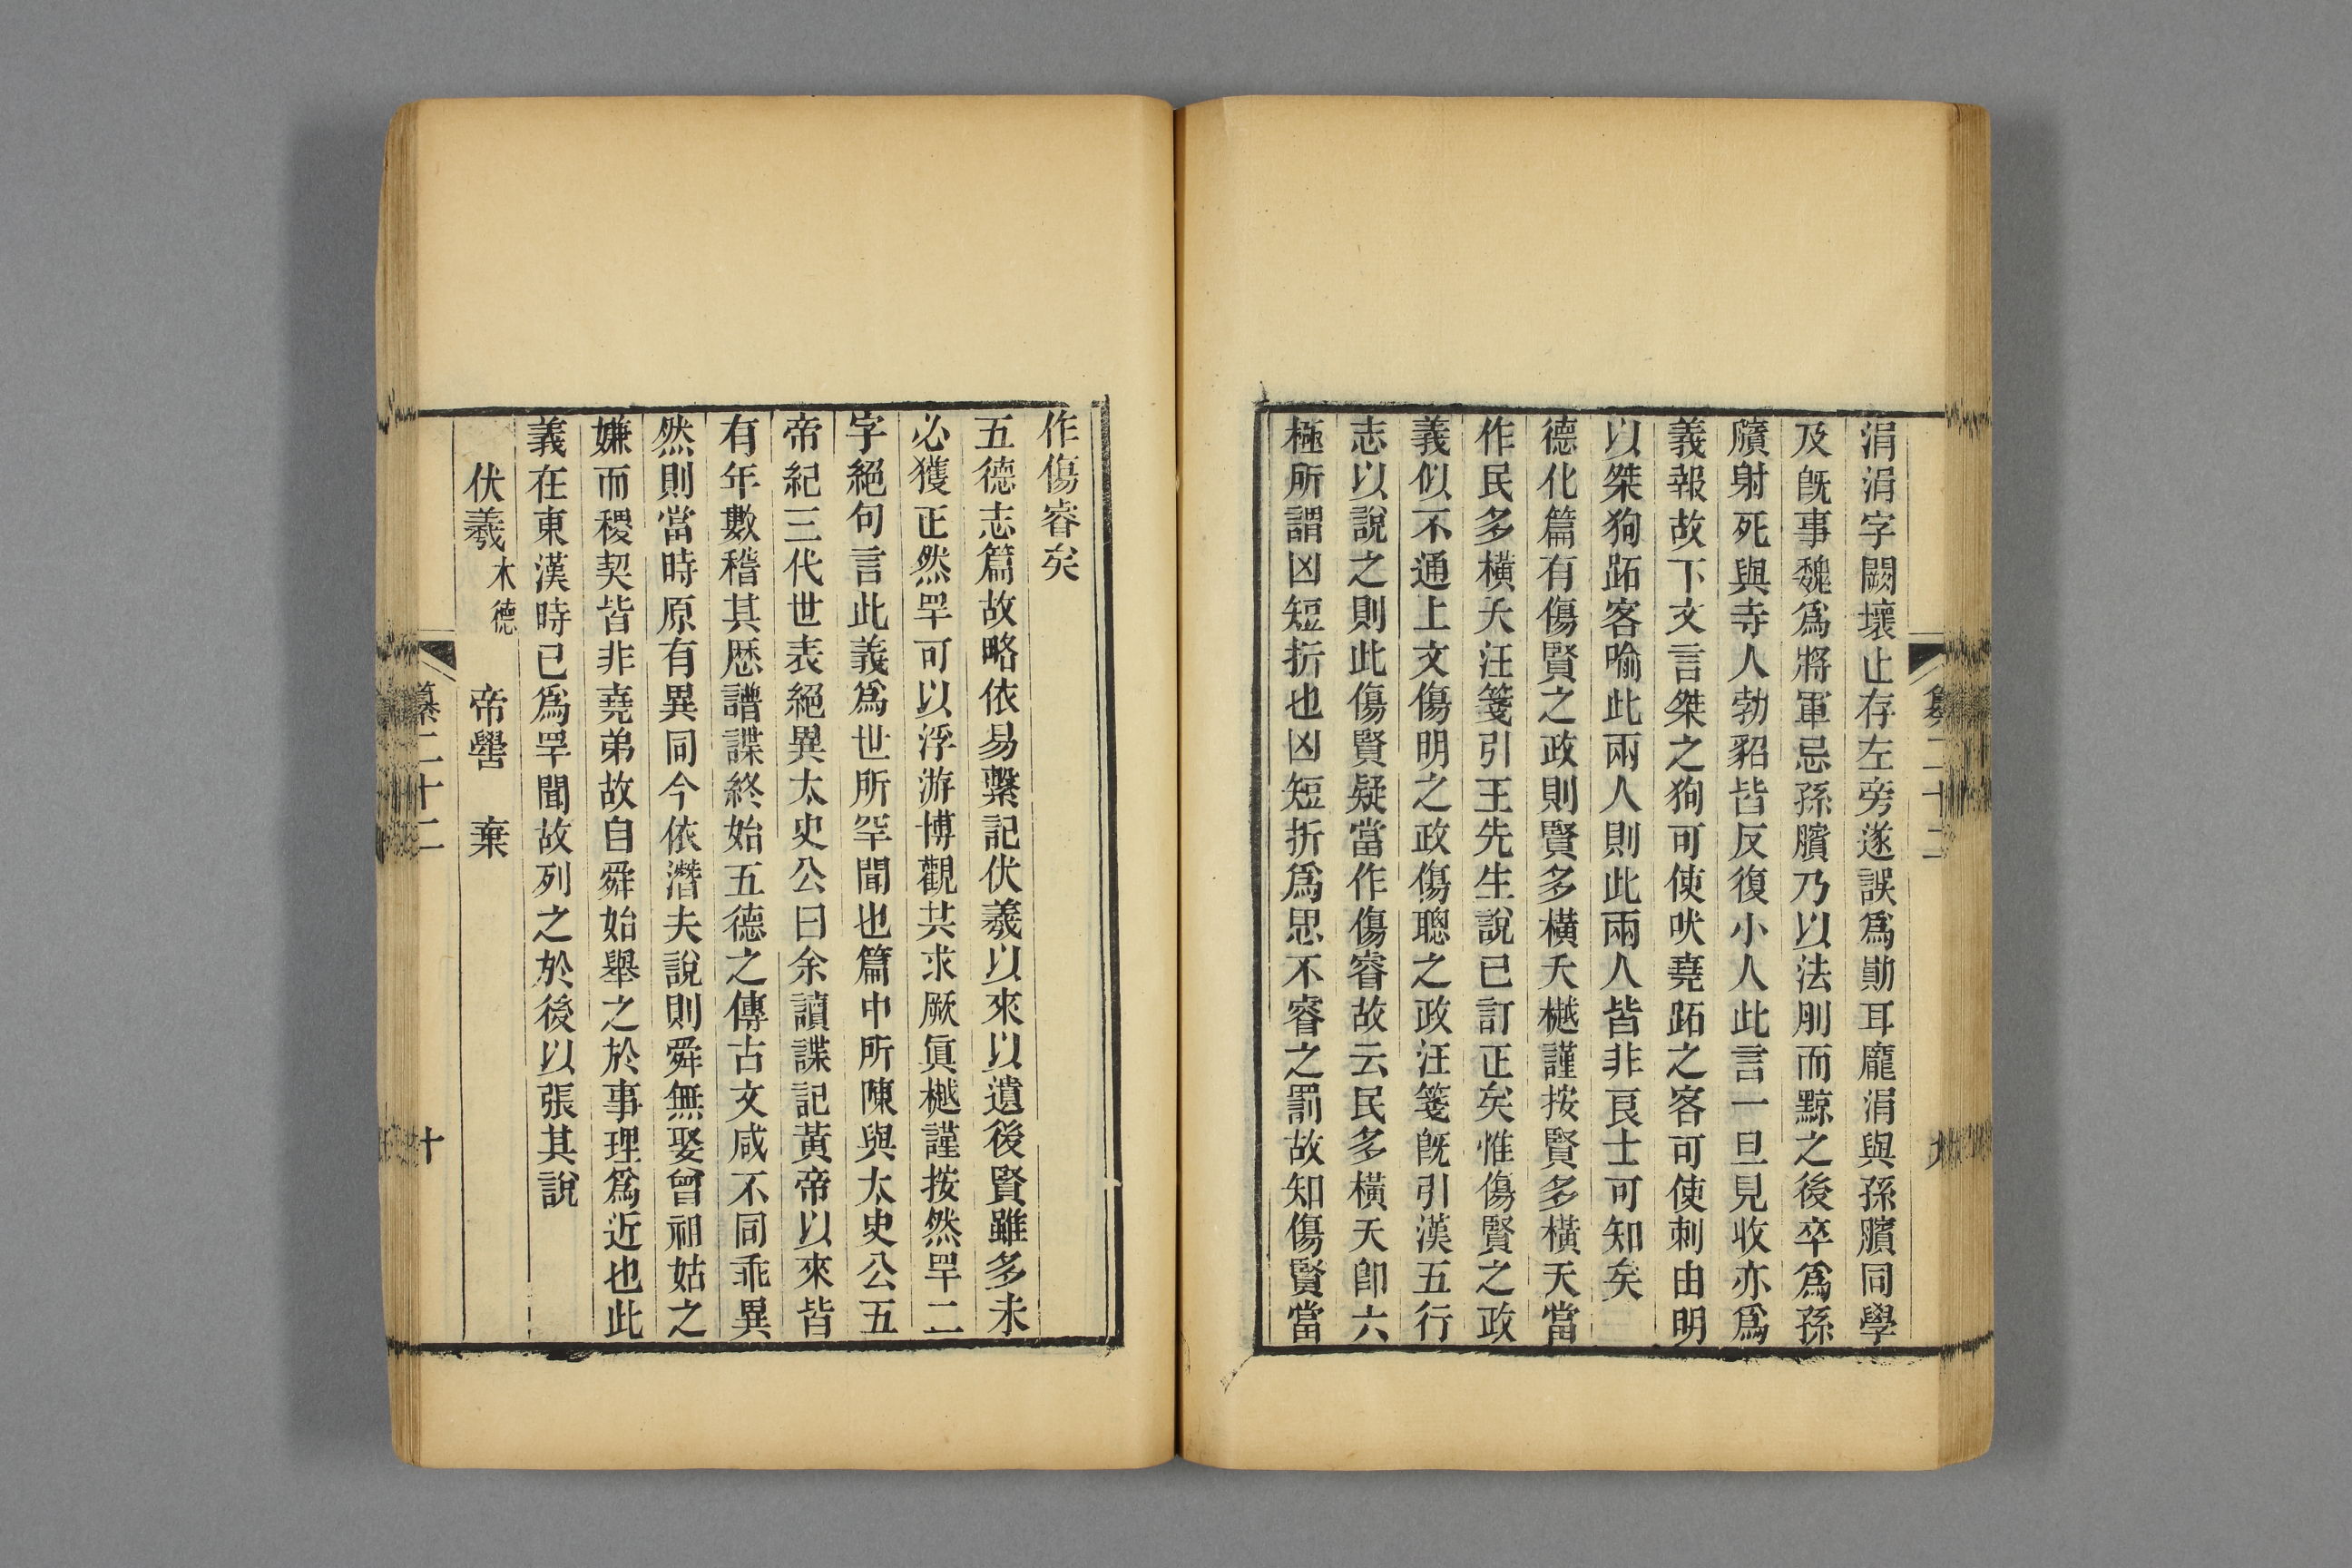 涓涓字闕壞止存左旁遂誤爲勛耳龐涓與孫臏同學
及旣事魏爲將軍忌孫臏乃以法刖而黥之後卒爲孫
臏射死與寺人勃貂皆反復小人此言一旦見收亦爲
義報故下文言桀之狗可使吠堯跖之客可使刺由明
以桀狗跖客喻此兩人則此兩人皆非良士可知矣
德化篇有傷賢之政則賢多橫夭樾謹按賢多橫夭當
作民多橫夭汪箋引王先生說已訂正矣惟傷賢之政
義似不通上文傷明之政傷聰之政汪箋旣引漢五行
志以說之則此傷賢疑當作傷睿故云民多橫夭卽六
極所謂凶短折也凶短折爲思不睿之罰故知傷賢當
二十二
九
作傷睿矣
五德志篇故略依易繫記伏羲以來以遺後賢雖多未
必獲正然罕可以浮游博觀共求厥眞樾謹按然罕二
字絕句言此義爲世所罕聞也篇中所陳與太史公五
帝紀三代世表絕異太史公曰余讀諜記黃帝以來皆
有年數稽其歷譜諜終始五德之傳古文咸不同乖異
然則當時原有異同今依潛夫說則舜無娶曾祖姑之
嫌而稷契皆非堯弟故自舜始舉之於事理爲近也此
義在東漢時已爲罕聞故列之於後以張其說
伏羲木德　帝嚳　棄
纂二十二
十